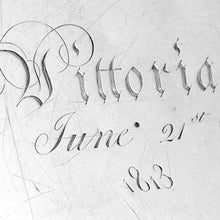 Vittoria
June 21st
1813